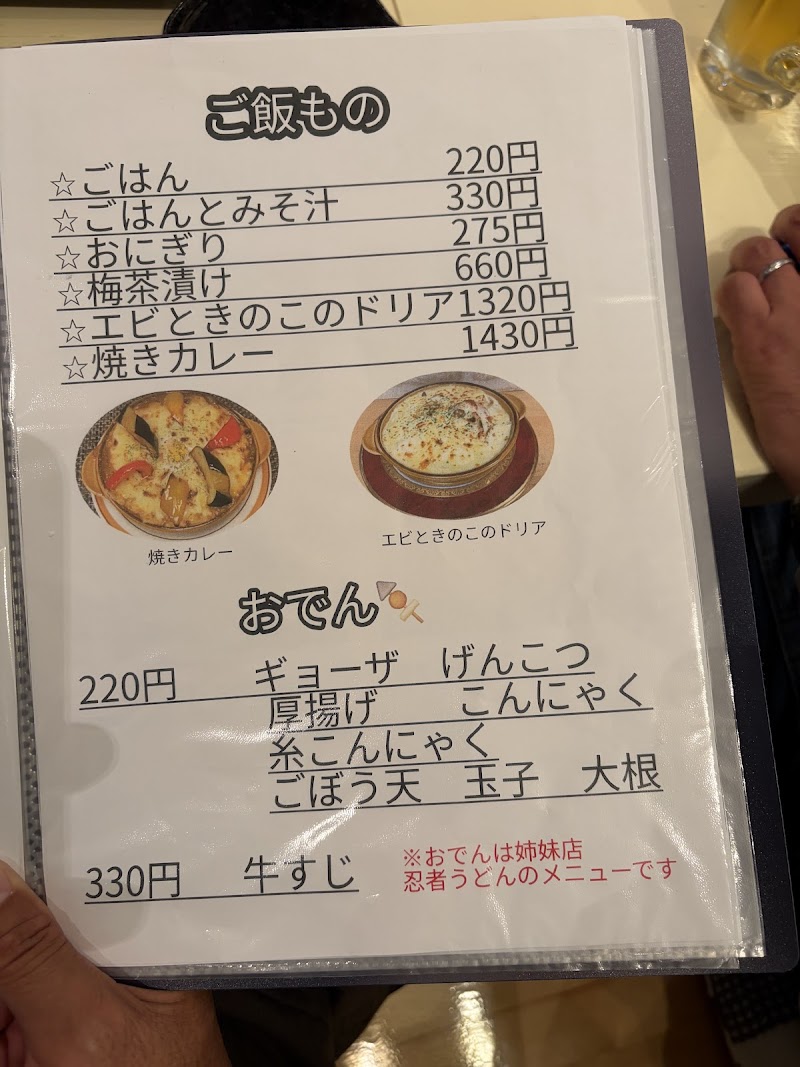 ご飯もの
☆ごはん 220円
☆ごはんとみそ汁 330円
☆おにぎり 275円
☆梅茶漬け 660円
☆エビときのこのドリア1320円
☆焼きカレー 1430円
焼きカレー エビときのこのドリア
おでん
220円 ギョーザ げんこつ
厚揚げ こんにゃく
糸こんにゃく
ごぼう天 玉子 大根
330円 牛すじ
※おでんは姉妹店
忍者うどんのメニューです